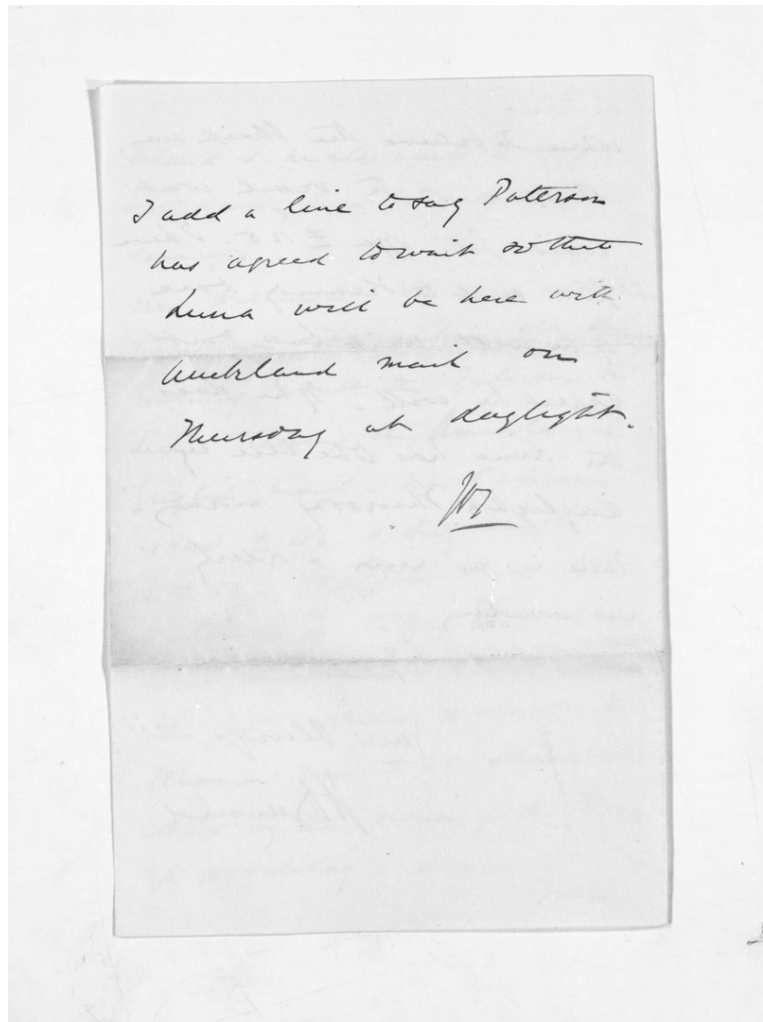 I add a line to say Paterson
has agreed to wait so that
Luna will be here with
Auckland mail on
Thursday at daylight.